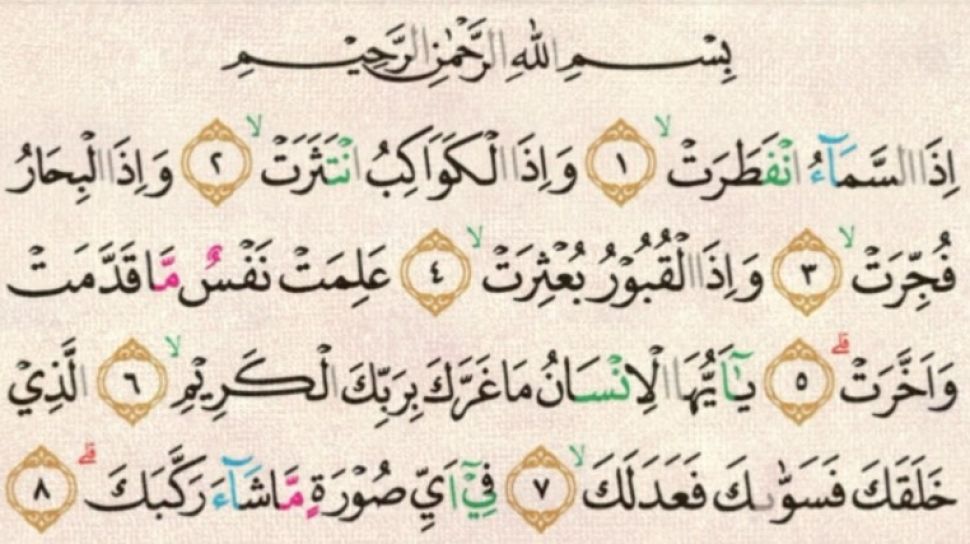 بِسْمِ اللهِ الرَّحْمٰنِ الرَّحِيْمِ
اِذَا السَّمَآءُ انْفَطَرَتْۙ ١ وَاِذَا الْكَوَاكِبُ انْتَثَرَتْۙ ٢ وَاِذَا الْبِحَارُ
فُجِّرَتْۙ ٣ وَاِذَا الْقُبُوْرُ بُعْثِرَتْۙ ٤ عَلِمَتْ نَفْسٌ مَّا قَدَّمَتْ
وَاَخَّرَتْۗ ٥ يٰٓاَيُّهَا الْاِنْسَانُ مَا غَرَّكَ بِرَبِّكَ الْكَرِيْمِۙ ٦ الَّذِيْ
خَلَقَكَ فَسَوّٰىكَ فَعَدَلَكَۙ ٧ فِيْٓ اَيِّ صُوْرَةٍ مَّا شَآءَ رَكَّبَكَۗ ٨